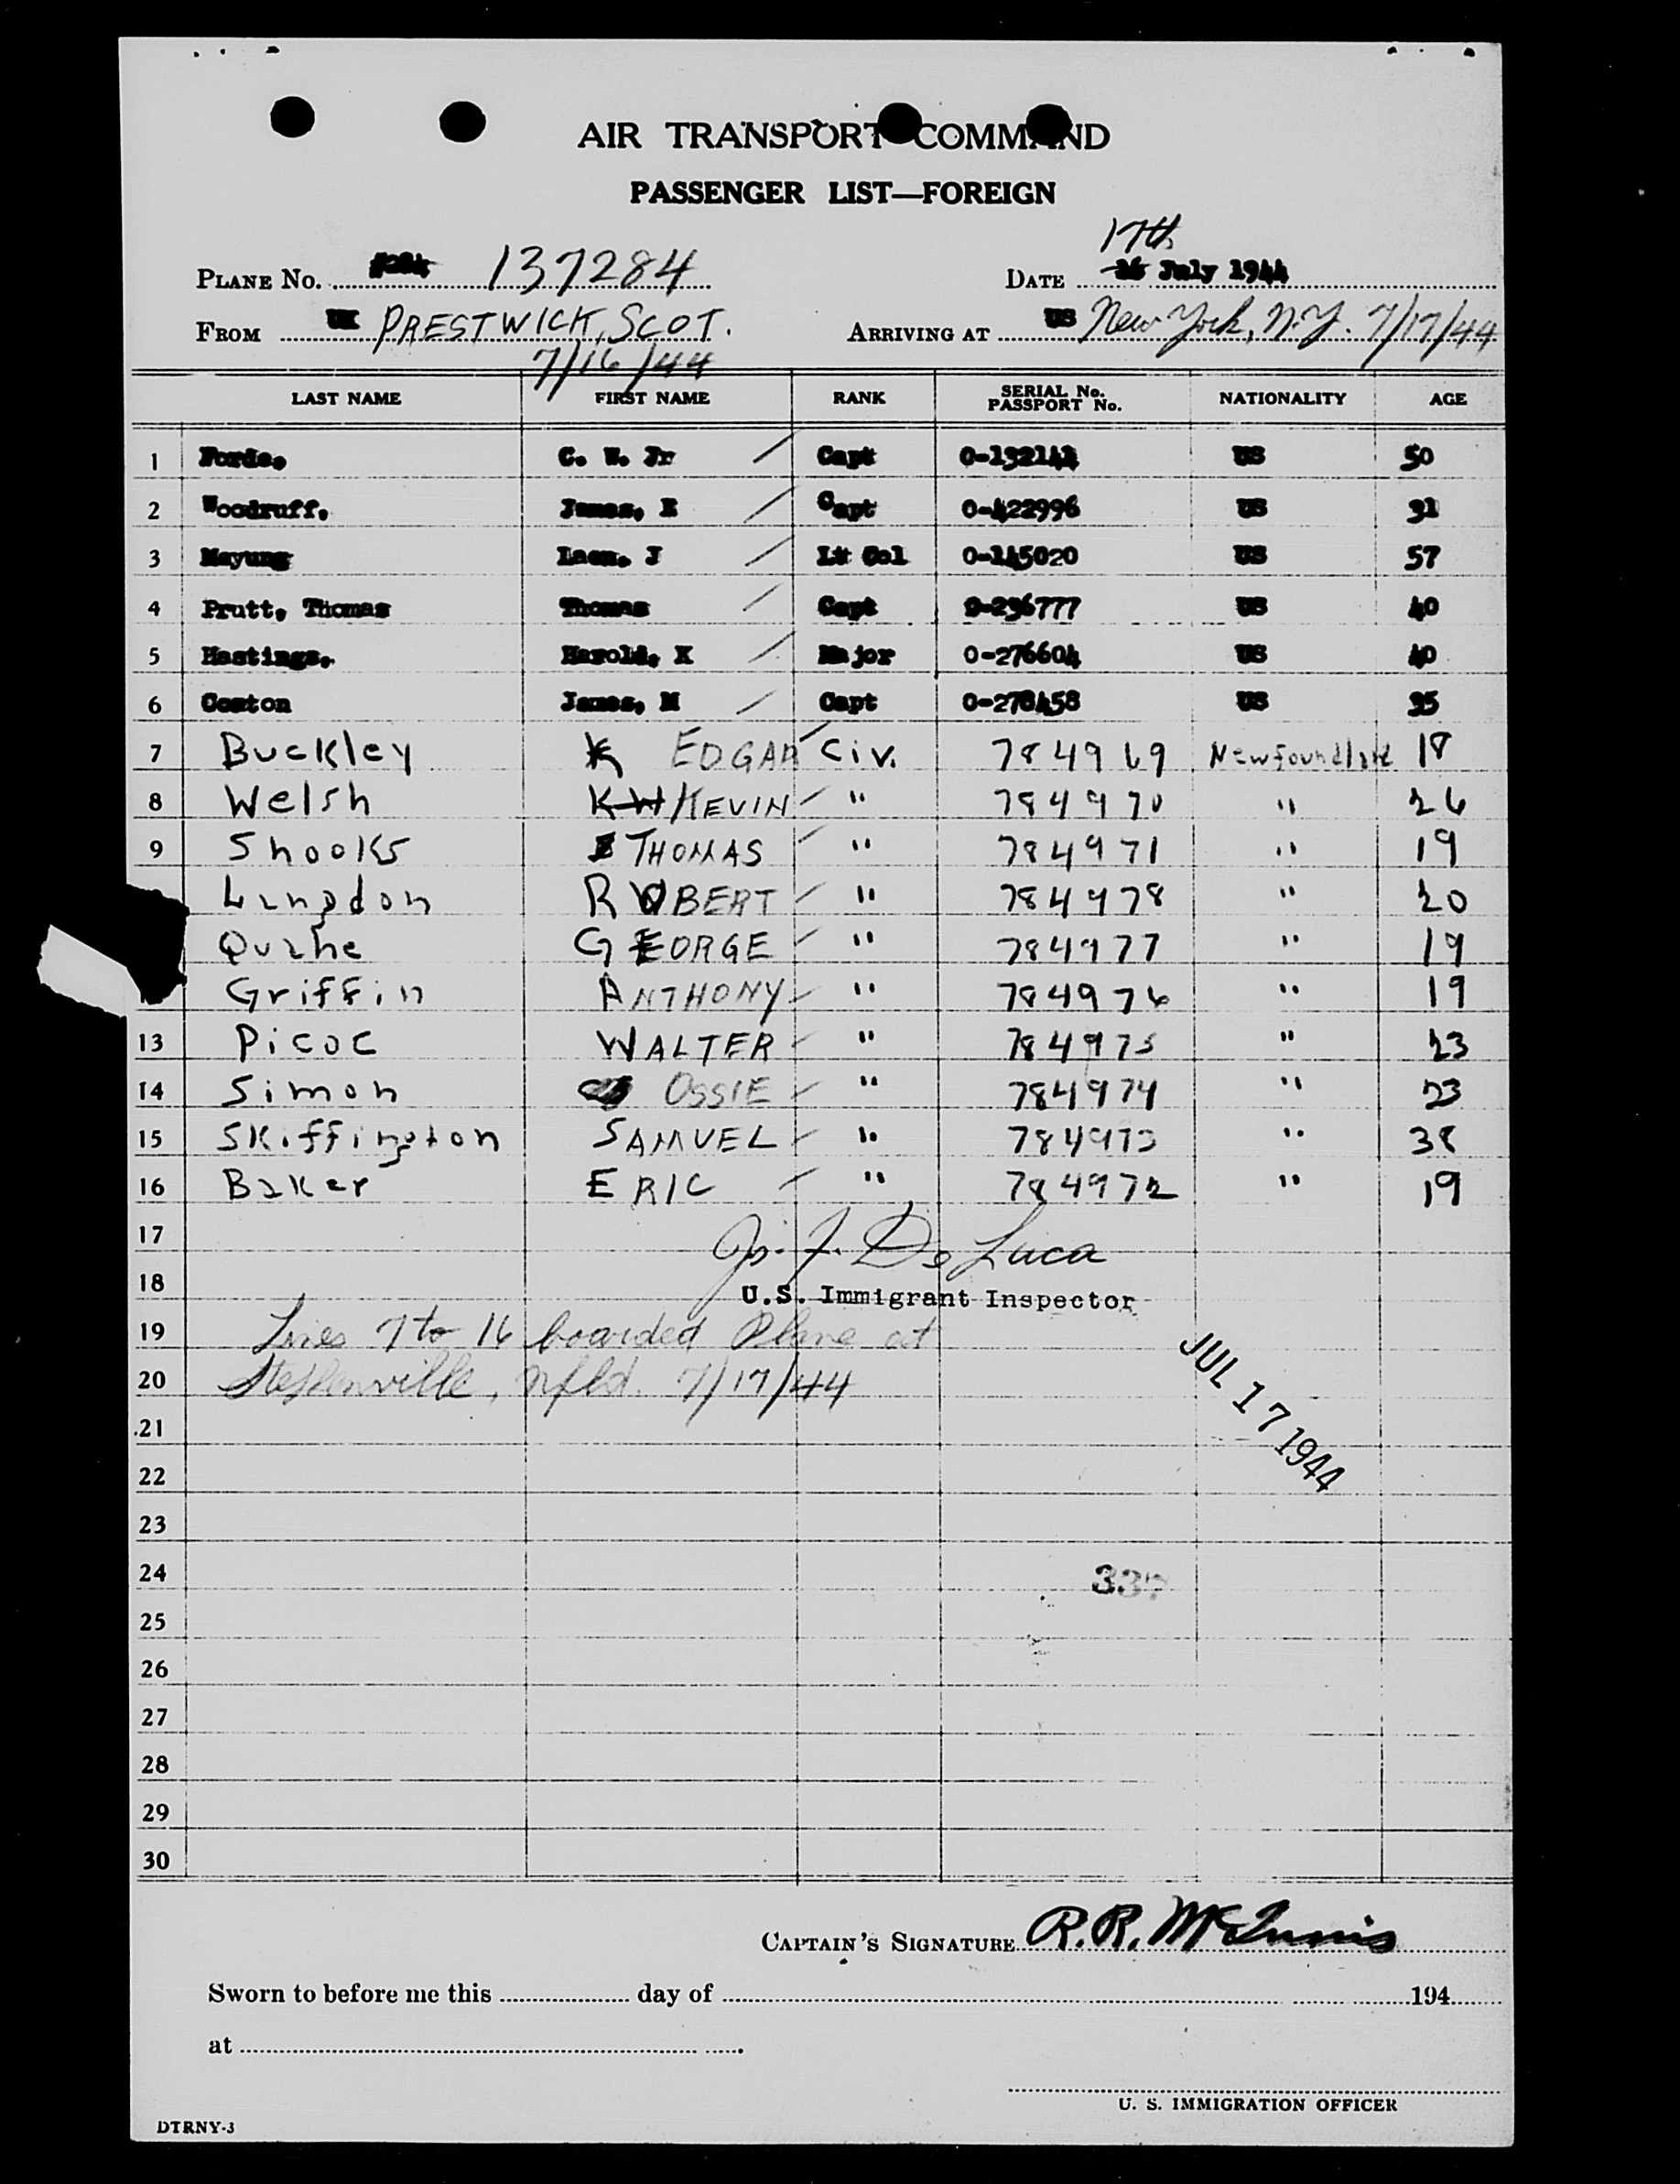 AIR TRANSPORT COMMAND
PASSENGER LIST—FOREIGN
17th
PLANE No. 137284 DATE 16 July 1944
FROM UK PRESTWICK, SCOT. ARRIVING AT US New York, N.Y. 7/17/44
7/16/44
LAST NAME FIRST NAME RANK SERIAL No. PASSPORT No. NATIONALITY AGE
1 C. W. Jr Capt US 50
2 Woodruff, James, E Capt 0-422996 US 31
3 J Lt Col 0-145020 US 57
4 Prutt, Thomas Thomas Capt 0-296777 US 40
5 Hastings, Harold, K Major 0-276604 US 40
6 Coston James, M Capt 0-278458 US 35
7 Buckley K EDGAR Civ. 784969 Newfoundland 18
8 Welsh K W KEVIN " 784970 " 26
9 Shooks THOMAS " 784971 " 19
Langdon ROBERT " 784978 " 20
Quahe GEORGE " 784977 " 19
Griffin ANTHONY " 784976 " 19
13 Picoc WALTER " 784975 " 23
14 Simon OSSIE " 784974 " 23
15 Skiffington SAMUEL " 784973 " 38
16 Baker ERIC " 784972 " 19
17 De Luca
18 U.S. Immigrant Inspector
19 Lines 7 to 16 boarded Plane at
20 Stephenville, Nfld. 7/17/44
JUL 17 1944
21
22
23
24
25
26
27
28
29
30
CAPTAIN'S SIGNATURE R. R. McInnis
Sworn to before me this day of 194
at
U. S. IMMIGRATION OFFICER
DTRNY-3